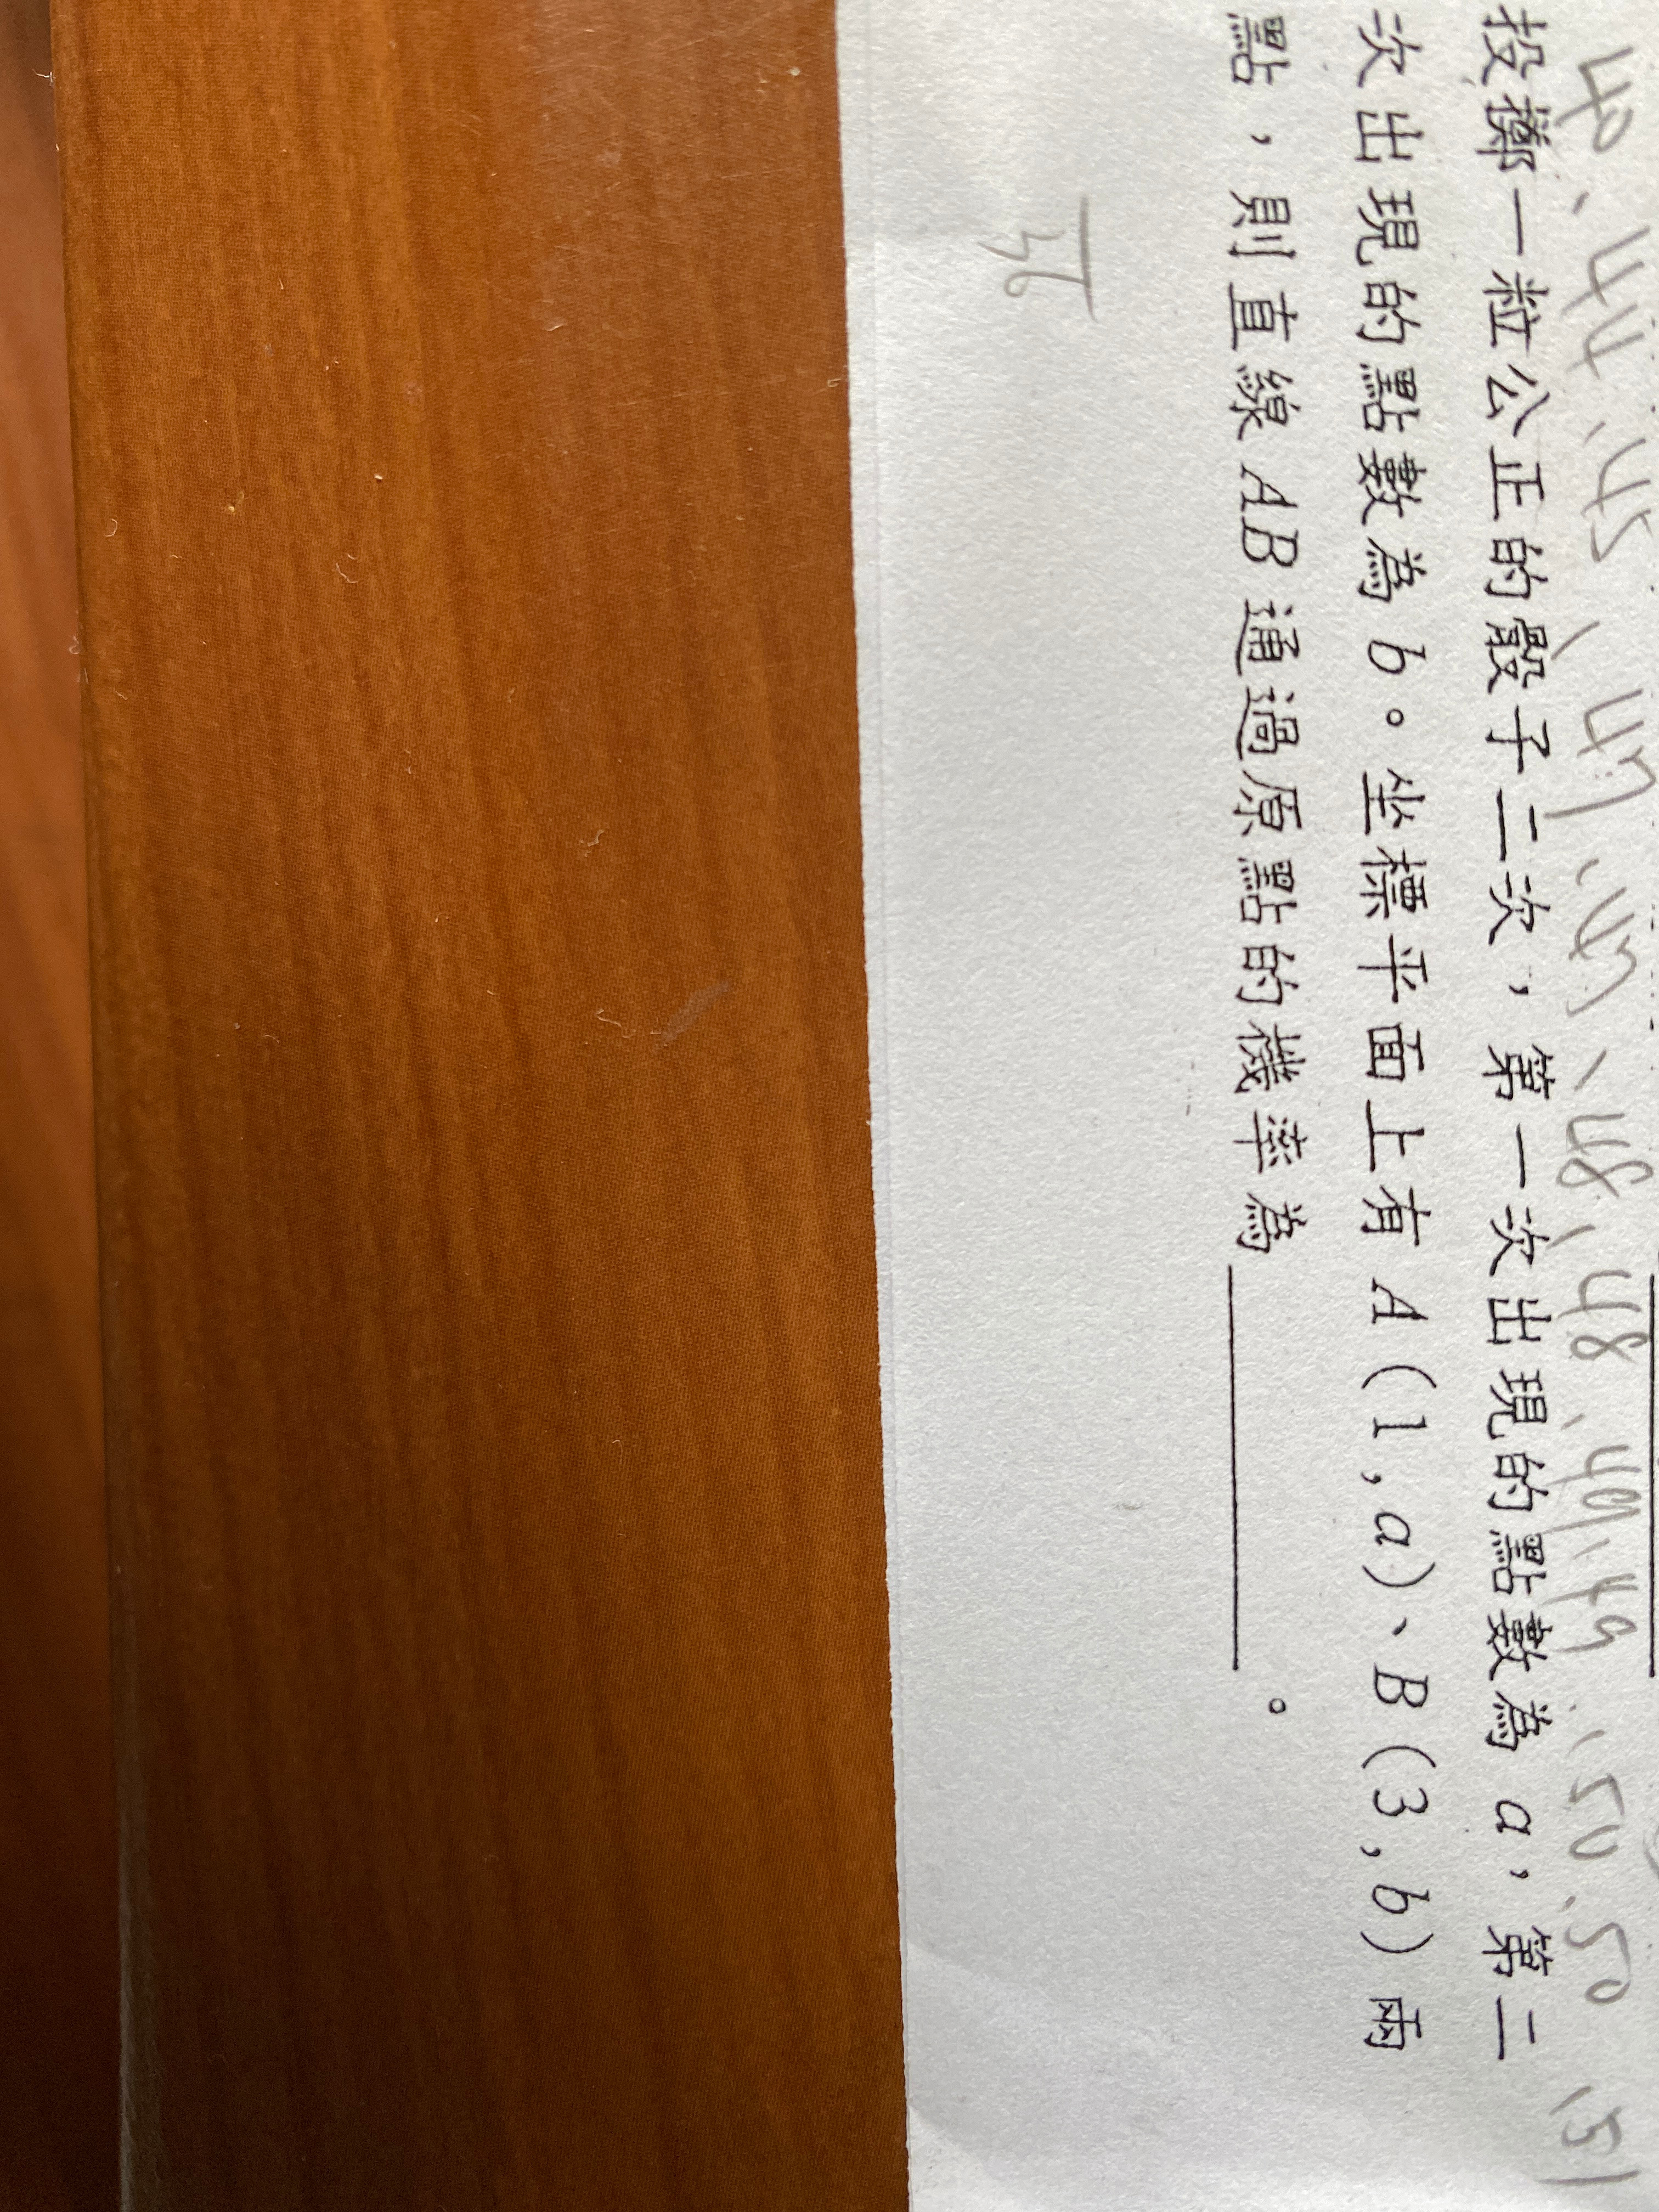 40、44、45、47、47、48、48、49、49、50、50、51
投擲一粒公正的骰子二次，第一次出現的點數為 a，第二
次出現的點數為 b。坐標平面上有 A(1,a)、B(3,b)兩
點，則直線 AB 通過原點的機率為＿＿＿＿。
36